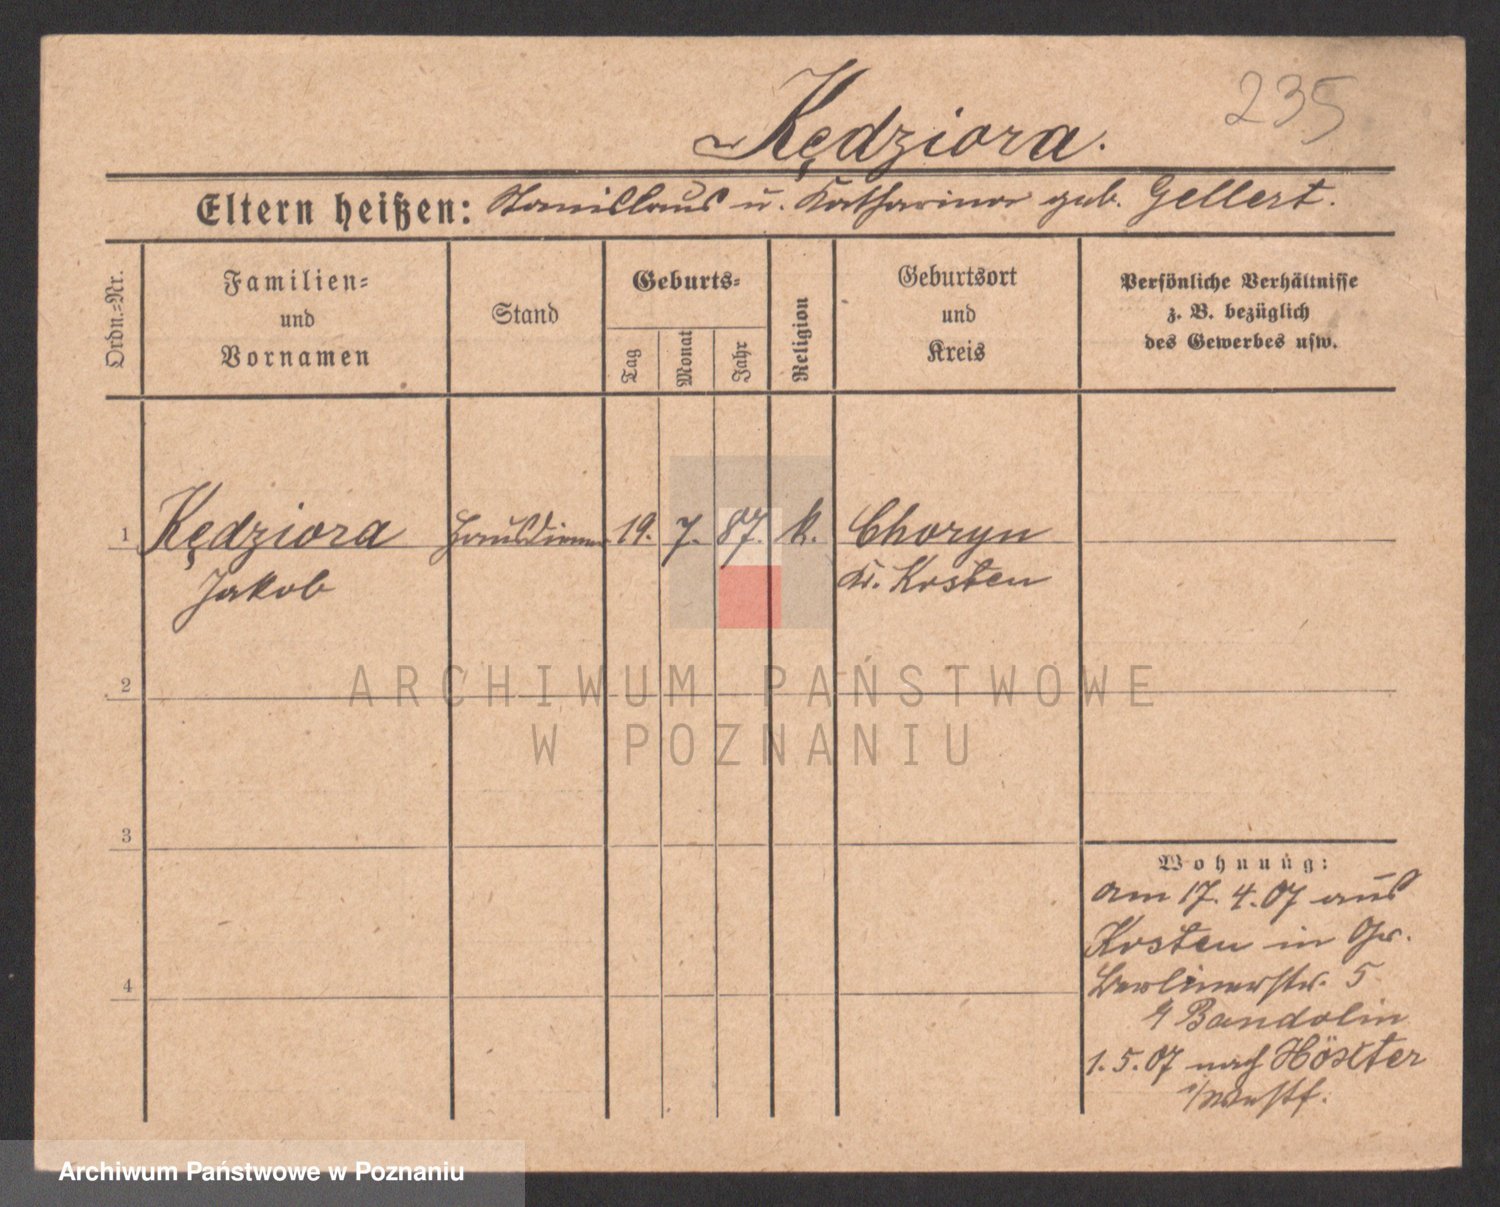 235
Kędziora.
Eltern heißen: Stanislaus u. Katharina geb. Gellert.
Ordn.=Nr.
Familien=
und
Vornamen
Stand
Geburts=
Tag
Monat
Jahr
Religion
Geburtsort
und
Kreis
Persönliche Verhältnisse
z. B. bezüglich
des Gewerbes usw.
1 Kędziora Hausdiener 19. 7. 87. k. Choryn
Jakob Kr. Kosten
2
ARCHIWUM PAŃSTWOWE
W POZNANIU
3
Wohnung:
am 17. 4. 07 aus
Kosten in Gr.
Berlinerstr. 5
4
Bandolin
1. 5. 07 nach Höxter
i/Westf.
Archiwum Państwowe w Poznaniu